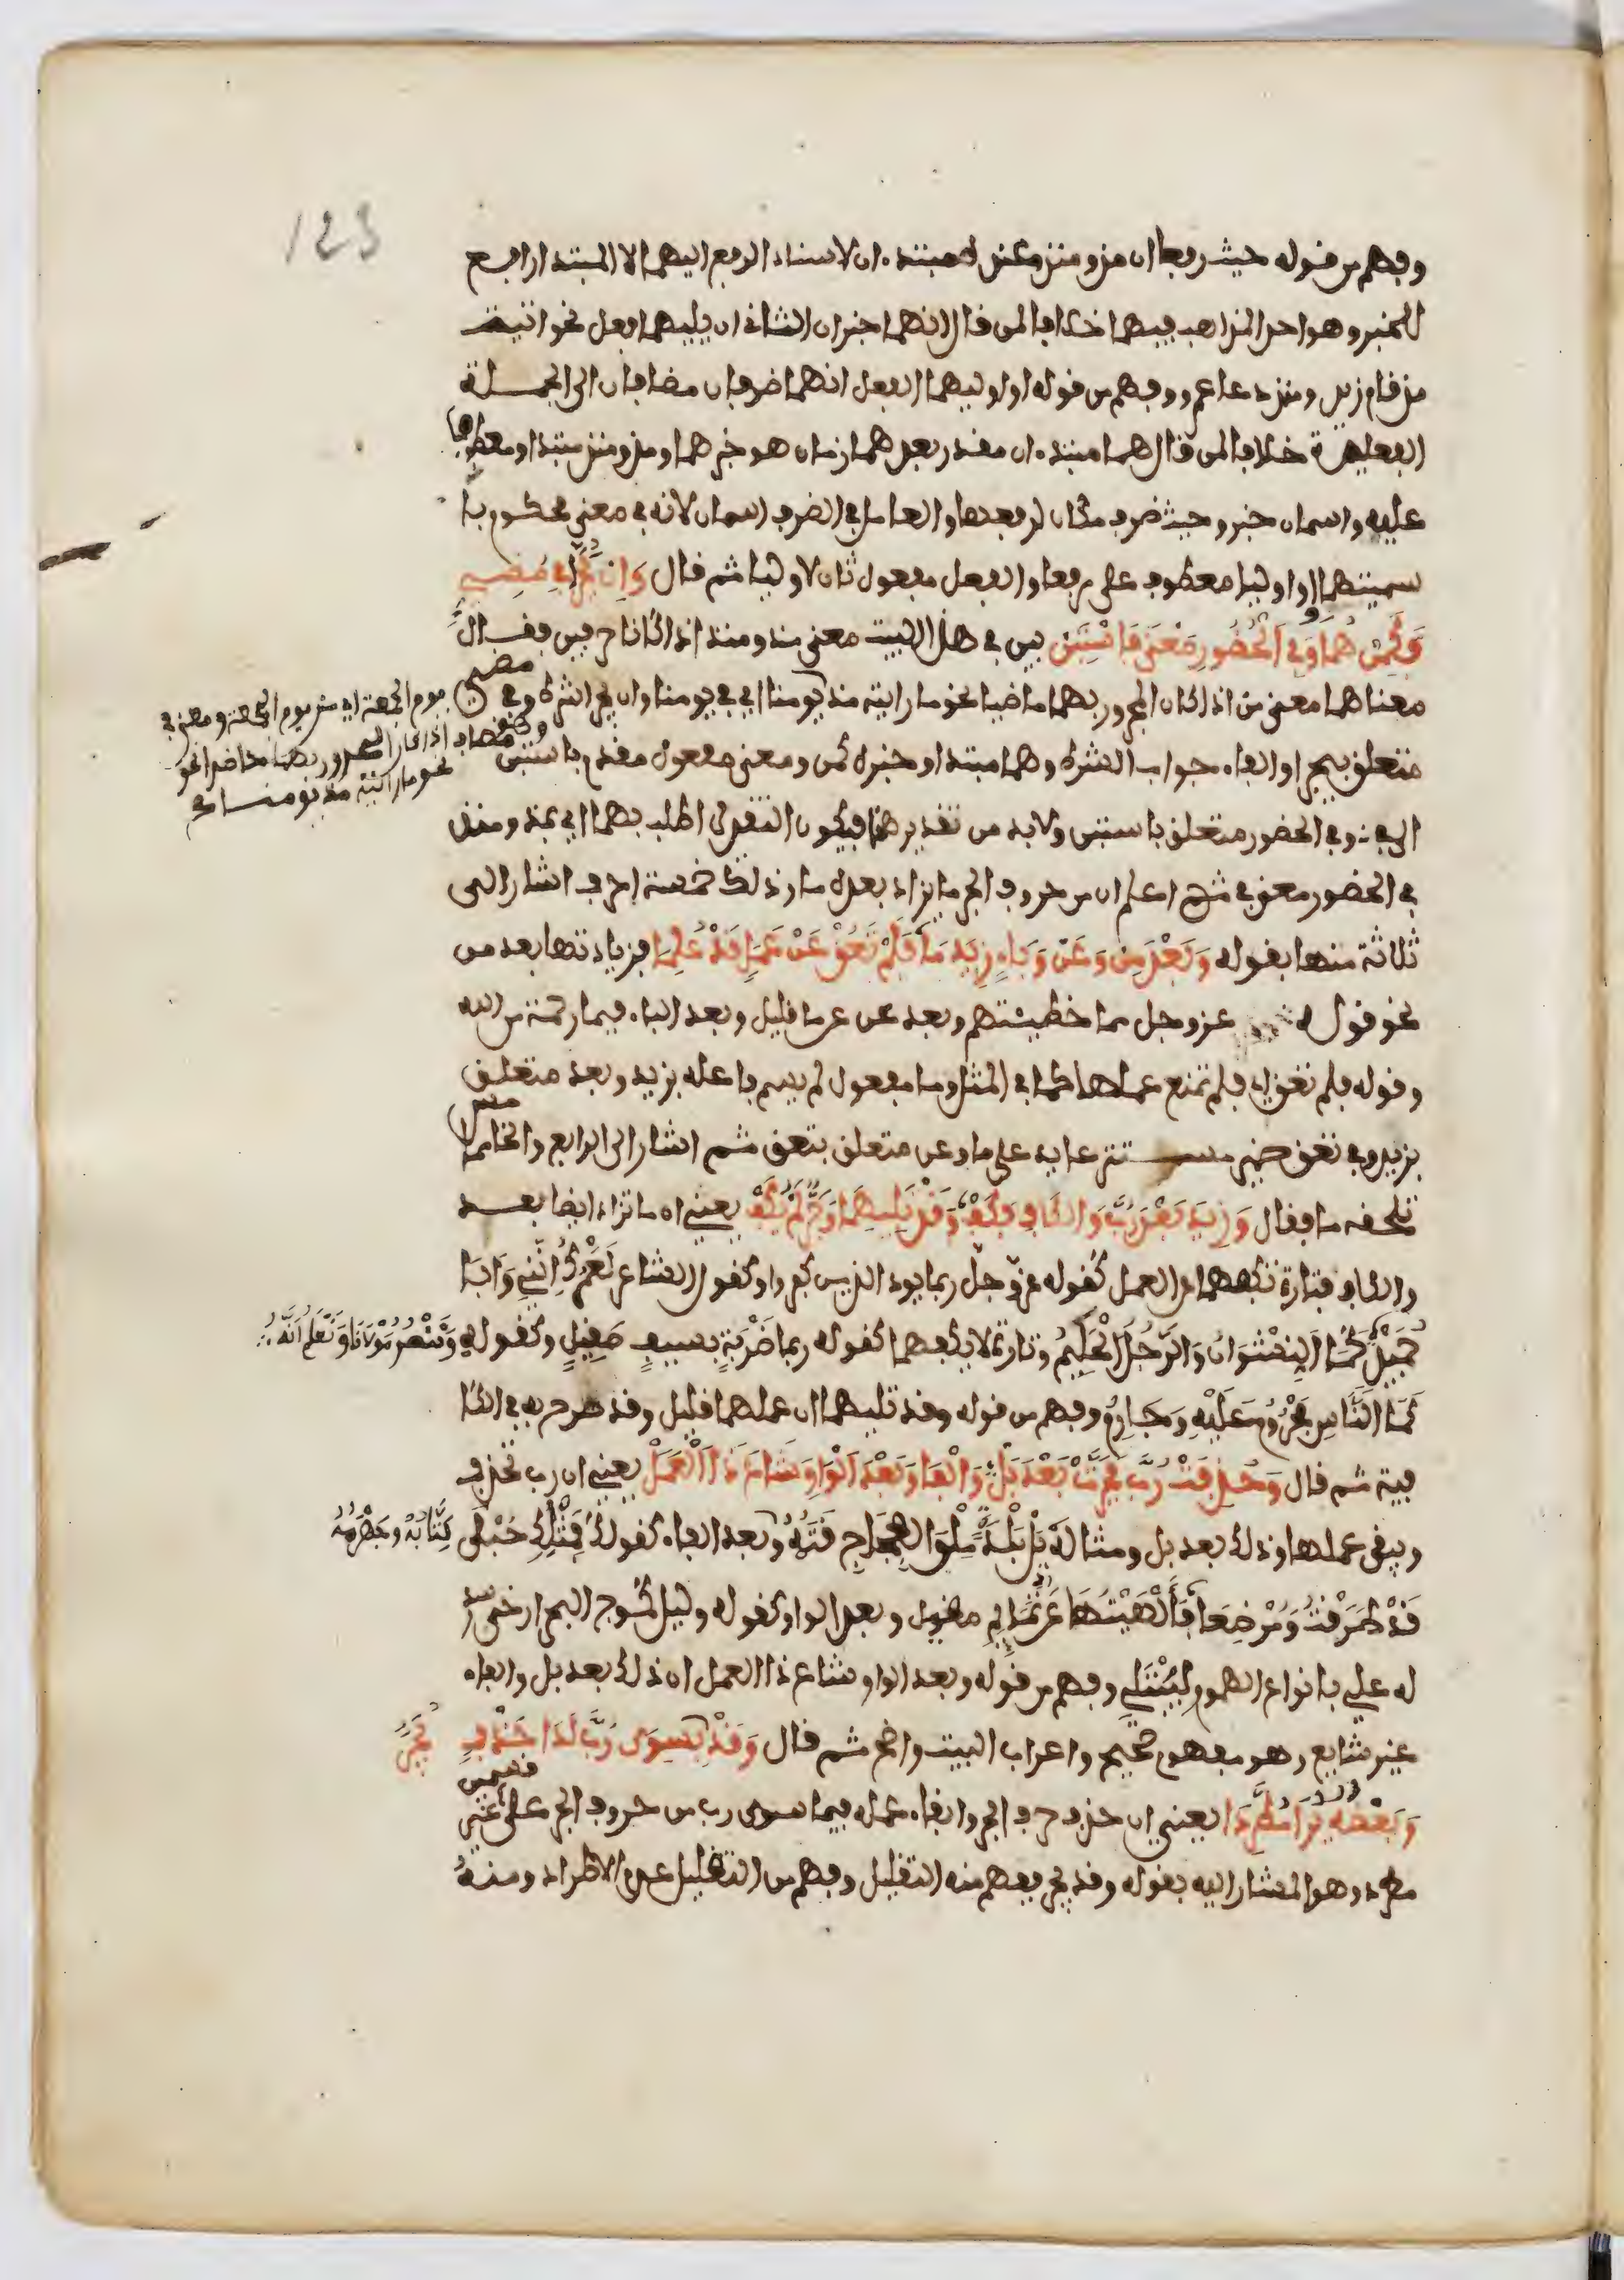 123
وفهم من قوله حيث رفعا ان مذ ومنذ عنده مبتدء ان لاسناد الرفع اليهما لا المبتدا رافع
للخبر وهو احد المذاهب فيهما خلافا لمن قال انهما خبران الثاني ان يليهما فعل نحو اتيتك
مذ قام زيد ومنذ دعا عمرو وفهم من قوله او اوليهما الفعل انهما ضرفان مضافان الى الجملة
الفعلية خلافا لمن قال هما مبتدءان مقدر بعدهما زمان هو خبرهما ومذ ومنذ مبتدا ومعطوف
عليه واسمان خبر وحيث ضرف مكان لرفعهما والعامل في الضرف اسمان لانه في معنى محكوم با
سميتهما او اوليا معطوف على رفعا والفعل مفعول ثان لاوليا ثم قال وَاِن يَجُرَّا فِي مُضِيٍّ
فَكَمِنْ هُمَا وَفِي الْحُضُورِ مَعْنَى فِي اسْتَبِنْ بين في هذا البيت معنى منذ ومنذ اذا كانا حرفين فقال
معناهما معنى من اذا كان المجرور بهما ماضيا نحو ما رايته منذ يومنا اي في يومنا وان يجرا شرط وفي مضي
يوم الجمعة اي من يوم الجمعة ومعنى في
اذا كان المجرور بهما حاضرا نحو
نحو ما رايته مذ يومنا صح
متعلق بيجرا والفاء جواب الشرط وهما مبتدا وخبره كمن ومعنى مفعول مقدم باستبن
الى في وفي الحضور متعلق باستبن ولابد من تقدير هما فيكون التقدير اطلب بهما اي بمذ ومنذ
في الحضور معنى في ثم اعلم ان من حروف الجر ما يزاد بعده ما وذلك خمسة احرف اشار الى
ثلاثة منها بقوله وَبَعْدَ مِنْ وَعَنْ وَبَاءٍ زِيدَ مَا فَلَمْ تَعُقْ عَنْ عَمَلٍ قَدْ عُلِمَا فزيادتها بعد من
نحو قوله عز وجل مما خطيئتهم وبعد عن عما قليل وبعد الباء فبما رحمة من الله
وقوله فلم تعق اي فلم تمنع عملها كما في المثل وما مفعول لم يسم فاعله بزيد وبعد متعلق
بزيد وفي تعق ضمير مستتر عايد على ما وعن متعلق بتعق ثم اشار الى الرابع والخامس
تلحقه ما فقال وَزِيدَ بَعْدَ رُبَّ وَالْكَافِ فَكَفّْ وَقَدْ تَلِيهِمَا وَجَرٌّ لَمْ يُكَفّْ يعني ان ما تزاد ايضا بعد
والكاف فتارة تكفهما عن العمل كقوله عز وجل ربما يود الذين كفروا وكقول الشاعر لَعَمْرُكَ اِنَّنِي وَاَبَا
حُمَيْدٍ كَمَا النَّشْوَانُ وَالرَّجُلُ الْحَلِيمُ وتارة لا يكفهما كقوله ربما ضَرْبَةٍ بسيفٍ صَقِيلٍ وكقوله وَنَنْصُرُ مَوْلَانَا وَنَعْلَمُ اَنَّهُ
كَمَا النَّاسِ مَجْرُومٌ عَلَيْهِ وَجَارِمُ وفهم من قوله وقد تليهما ان عملهما قليل وقد صرح به في الكا
فية ثم قال وَحُذِفَتْ رُبَّ فَجَرَّتْ بَعْدَ بَلْ وَالْفَا وَبَعْدَ الْوَاوِ شَاعَ ذَا الْعَمَلْ يعني ان رب تحذف
ويبقى عملها وذلك بعد بل ومثاله بَلْ بَلَدٍ مِلْءُ الْفِجَاجِ قَتَمُهُ وبعد الفاء كقوله فَمِثْلِكِ حُبْلَى
كِتَّانُهُ وجَهْرَمُهُ
قَدْ طَرَقْتُ وَمُرْضِعٍ فَأَلْهَيْتُهَا عَنْ تَمَائِمِ مغيل وبعد الواو كقوله وليل كموج البحر ارخى سد
له علي بانواع الهموم لِيَبْتَلِي وفهم من قوله وبعد الواو شاع ذا العمل ان ذلك بعد بل والفاء
غير شايع وهو مفهوم صحيح واعراب البيت واضح ثم قال وَقَدْ يُجَرُّ بِسِوَى رُبَّ لَدَا حَذْفٍ
وَبَعْضُهُ يُرَى مُطَّرِدَا يعني ان حذف حرف الجر وابقاء عمله فيما سوى رب من حروف الجر على قسمين غير
مطرد وهو المشار اليه بقوله وقد يجر يفهم منه التقليل وفهم من التقليل عدم الاطراد ومنه